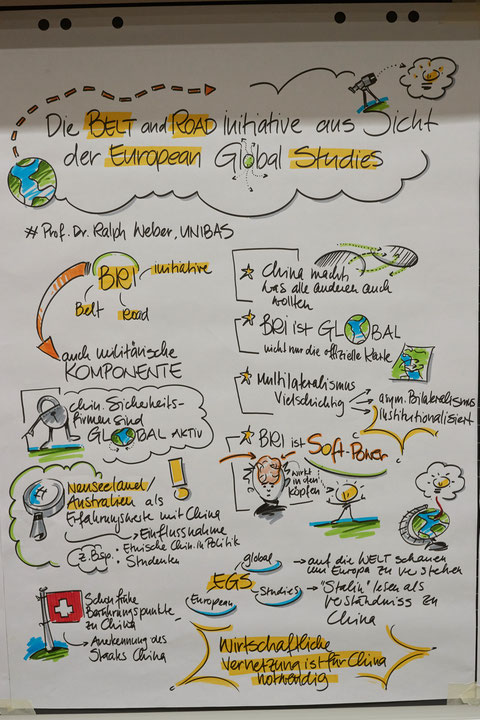 Die BELT and ROAD Initiative aus Sicht
der European Global Studies
# Prof. Dr. Ralph Weber, UNIBAS
BRI
initiative
Belt
Road
auch militärische
KOMPONENTE
chin. Sicherheits-
firmen sind
GLOBAL AKTIV
Neuseeland/
Australien als
Erfahrungswerte mit China
Einflussnahme
z.Bsp.
· Etnische Chin. in Politik
· Studenten
Schon frühe
Berührungspunkte
zu China
Anerkennung des
Staats China
China macht
was alle anderen auch
wollten
BRI ist GLOBAL
nicht nur die offizielle Karte
Multilateralismus
Vielschichtig
asym. Bilateralismus
Institutionalisiert
BRI ist Soft-Power
wirkt
in den
Köpfen
EGS
global
European
Studies
auf die WELT schauen
um Europa zu verstehen
"Stalin" lesen als
Verständniss zu
China
Wirtschaftliche
Vernetzung ist für China
notwendig